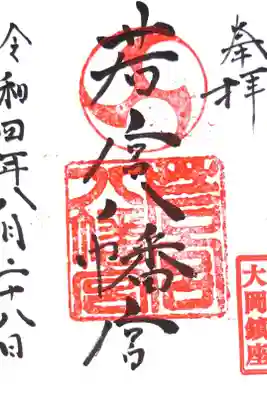 奉拝
大岡鎮座
若宮八幡宮
若宮八幡宮
令和四年八月二十八日